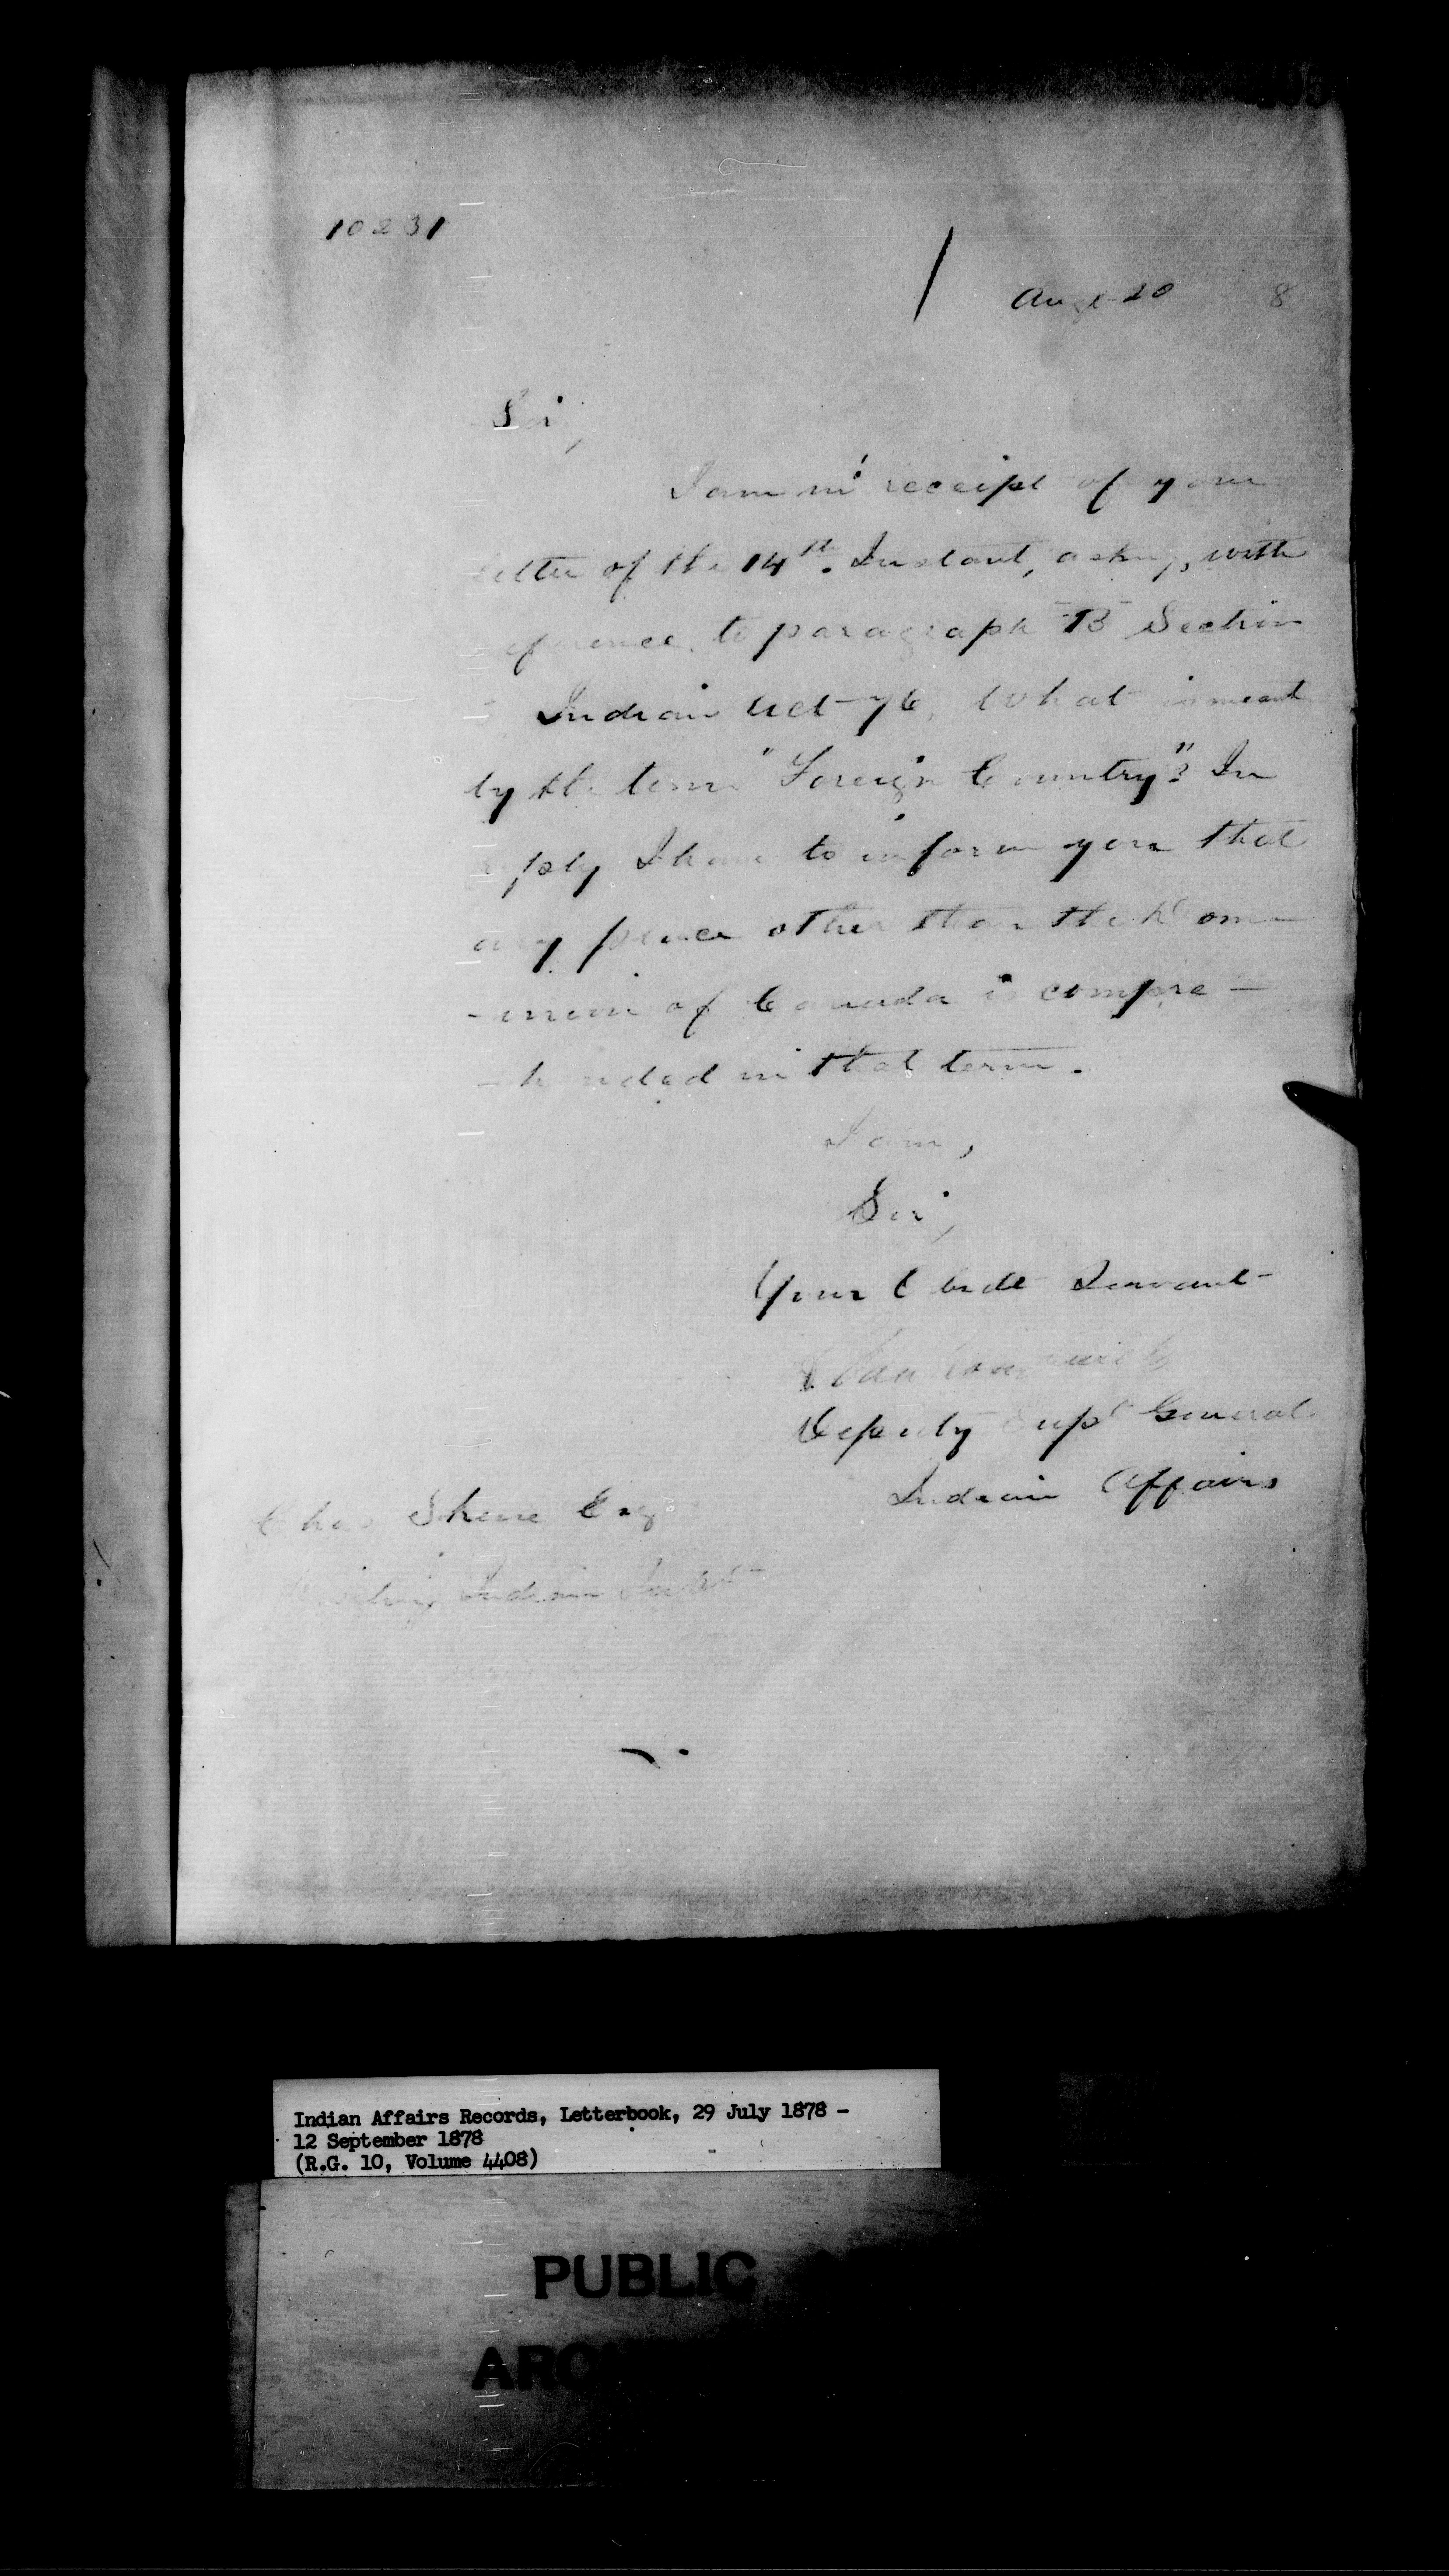 10231
Augt 20 8
Sir,
I am in receipt of your
letter of the 14th. Instant, asking, with
reference to paragraph B Section
Indian Act 76, What is meant
by the term "Foreign Country"? In
reply I have to inform you that
any place other than the Dom
-inion of Canada is compre-
-hended in that term.
I am,
Sir,
Your Obedt Servant
Deputy Supt General
Indian Affairs
Chas Skene Esq
Visiting Indian Supt
Indian Affairs Records, Letterbook, 29 July 1878 -
12 September 1878
(R.G. 10, Volume 4408)
PUBLIC
ARC